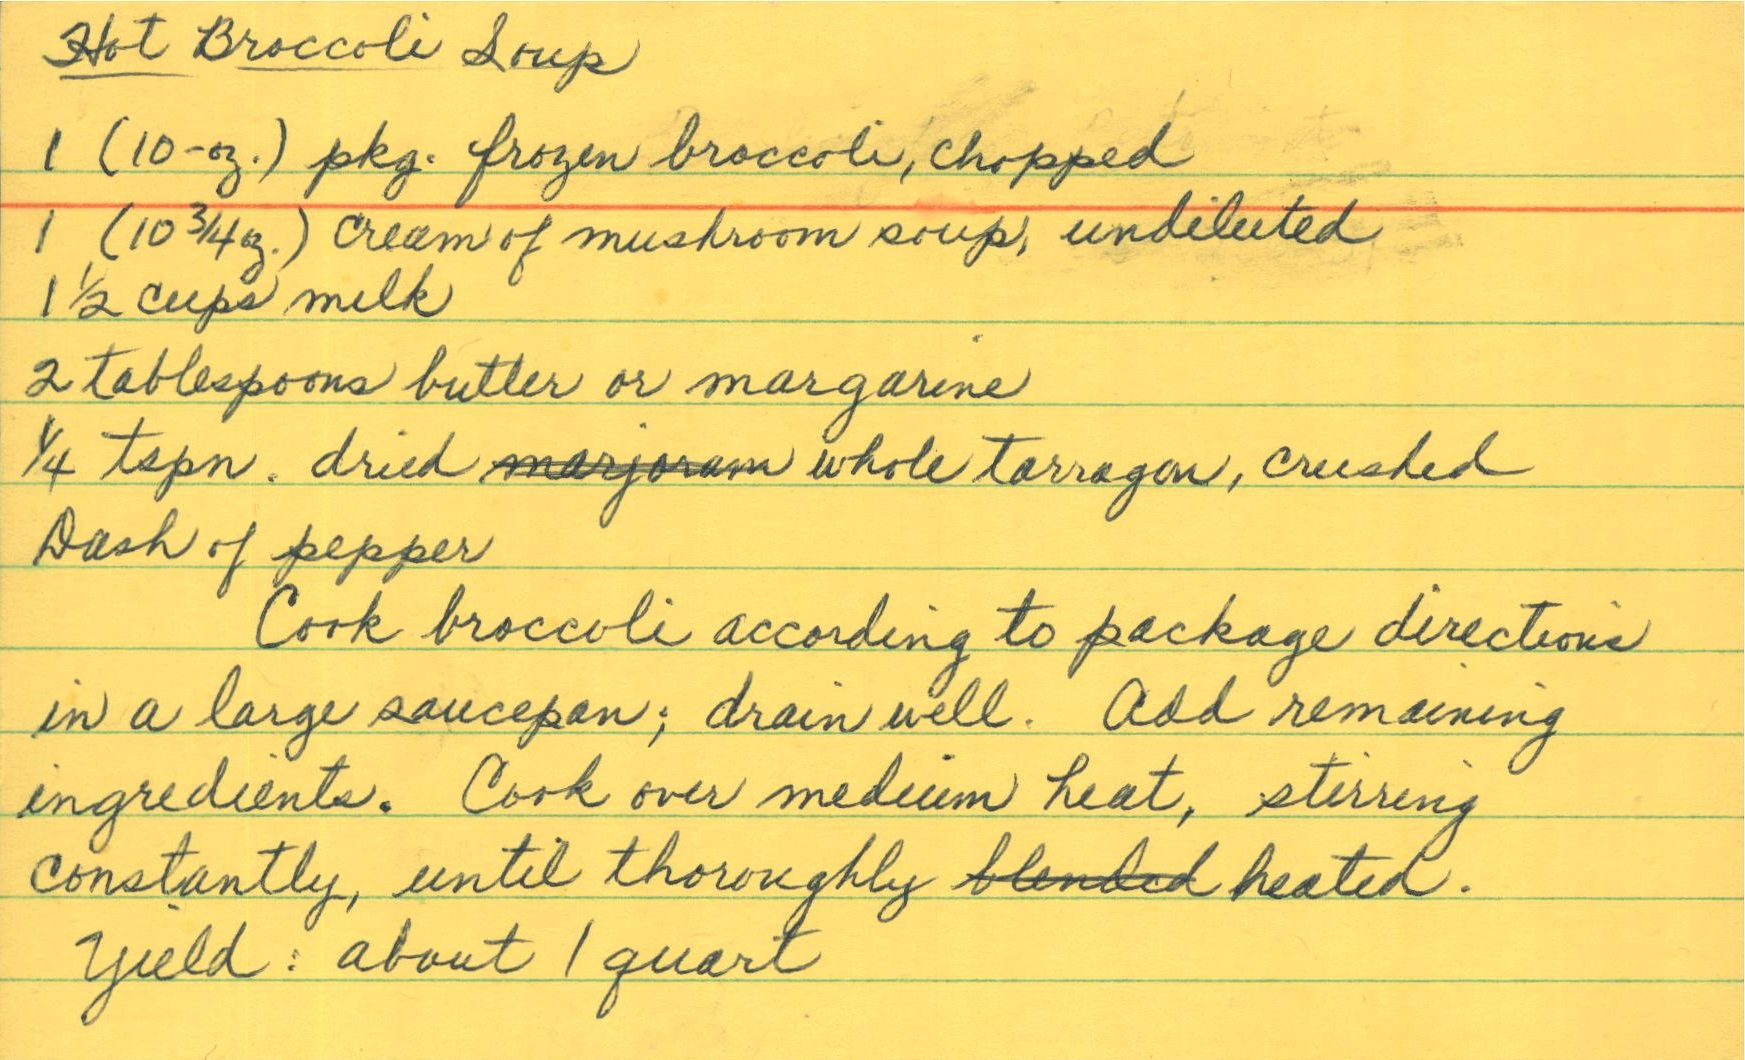 Hot Broccoli Soup
1 (10-oz.) pkg. frozen broccoli, chopped
1 (10 3/4 oz.) cream of mushroom soup, undiluted
1 1/2 cups milk
2 tablespoons butter or margarine
1/4 tspn. dried ~~marjoram~~ whole tarragon, crushed
Dash of pepper
Cook broccoli according to package directions
in a large saucepan; drain well. Add remaining
ingredients. Cook over medium heat, stirring
constantly, until thoroughly ~~blended~~ heated.
Yield: about 1 quart